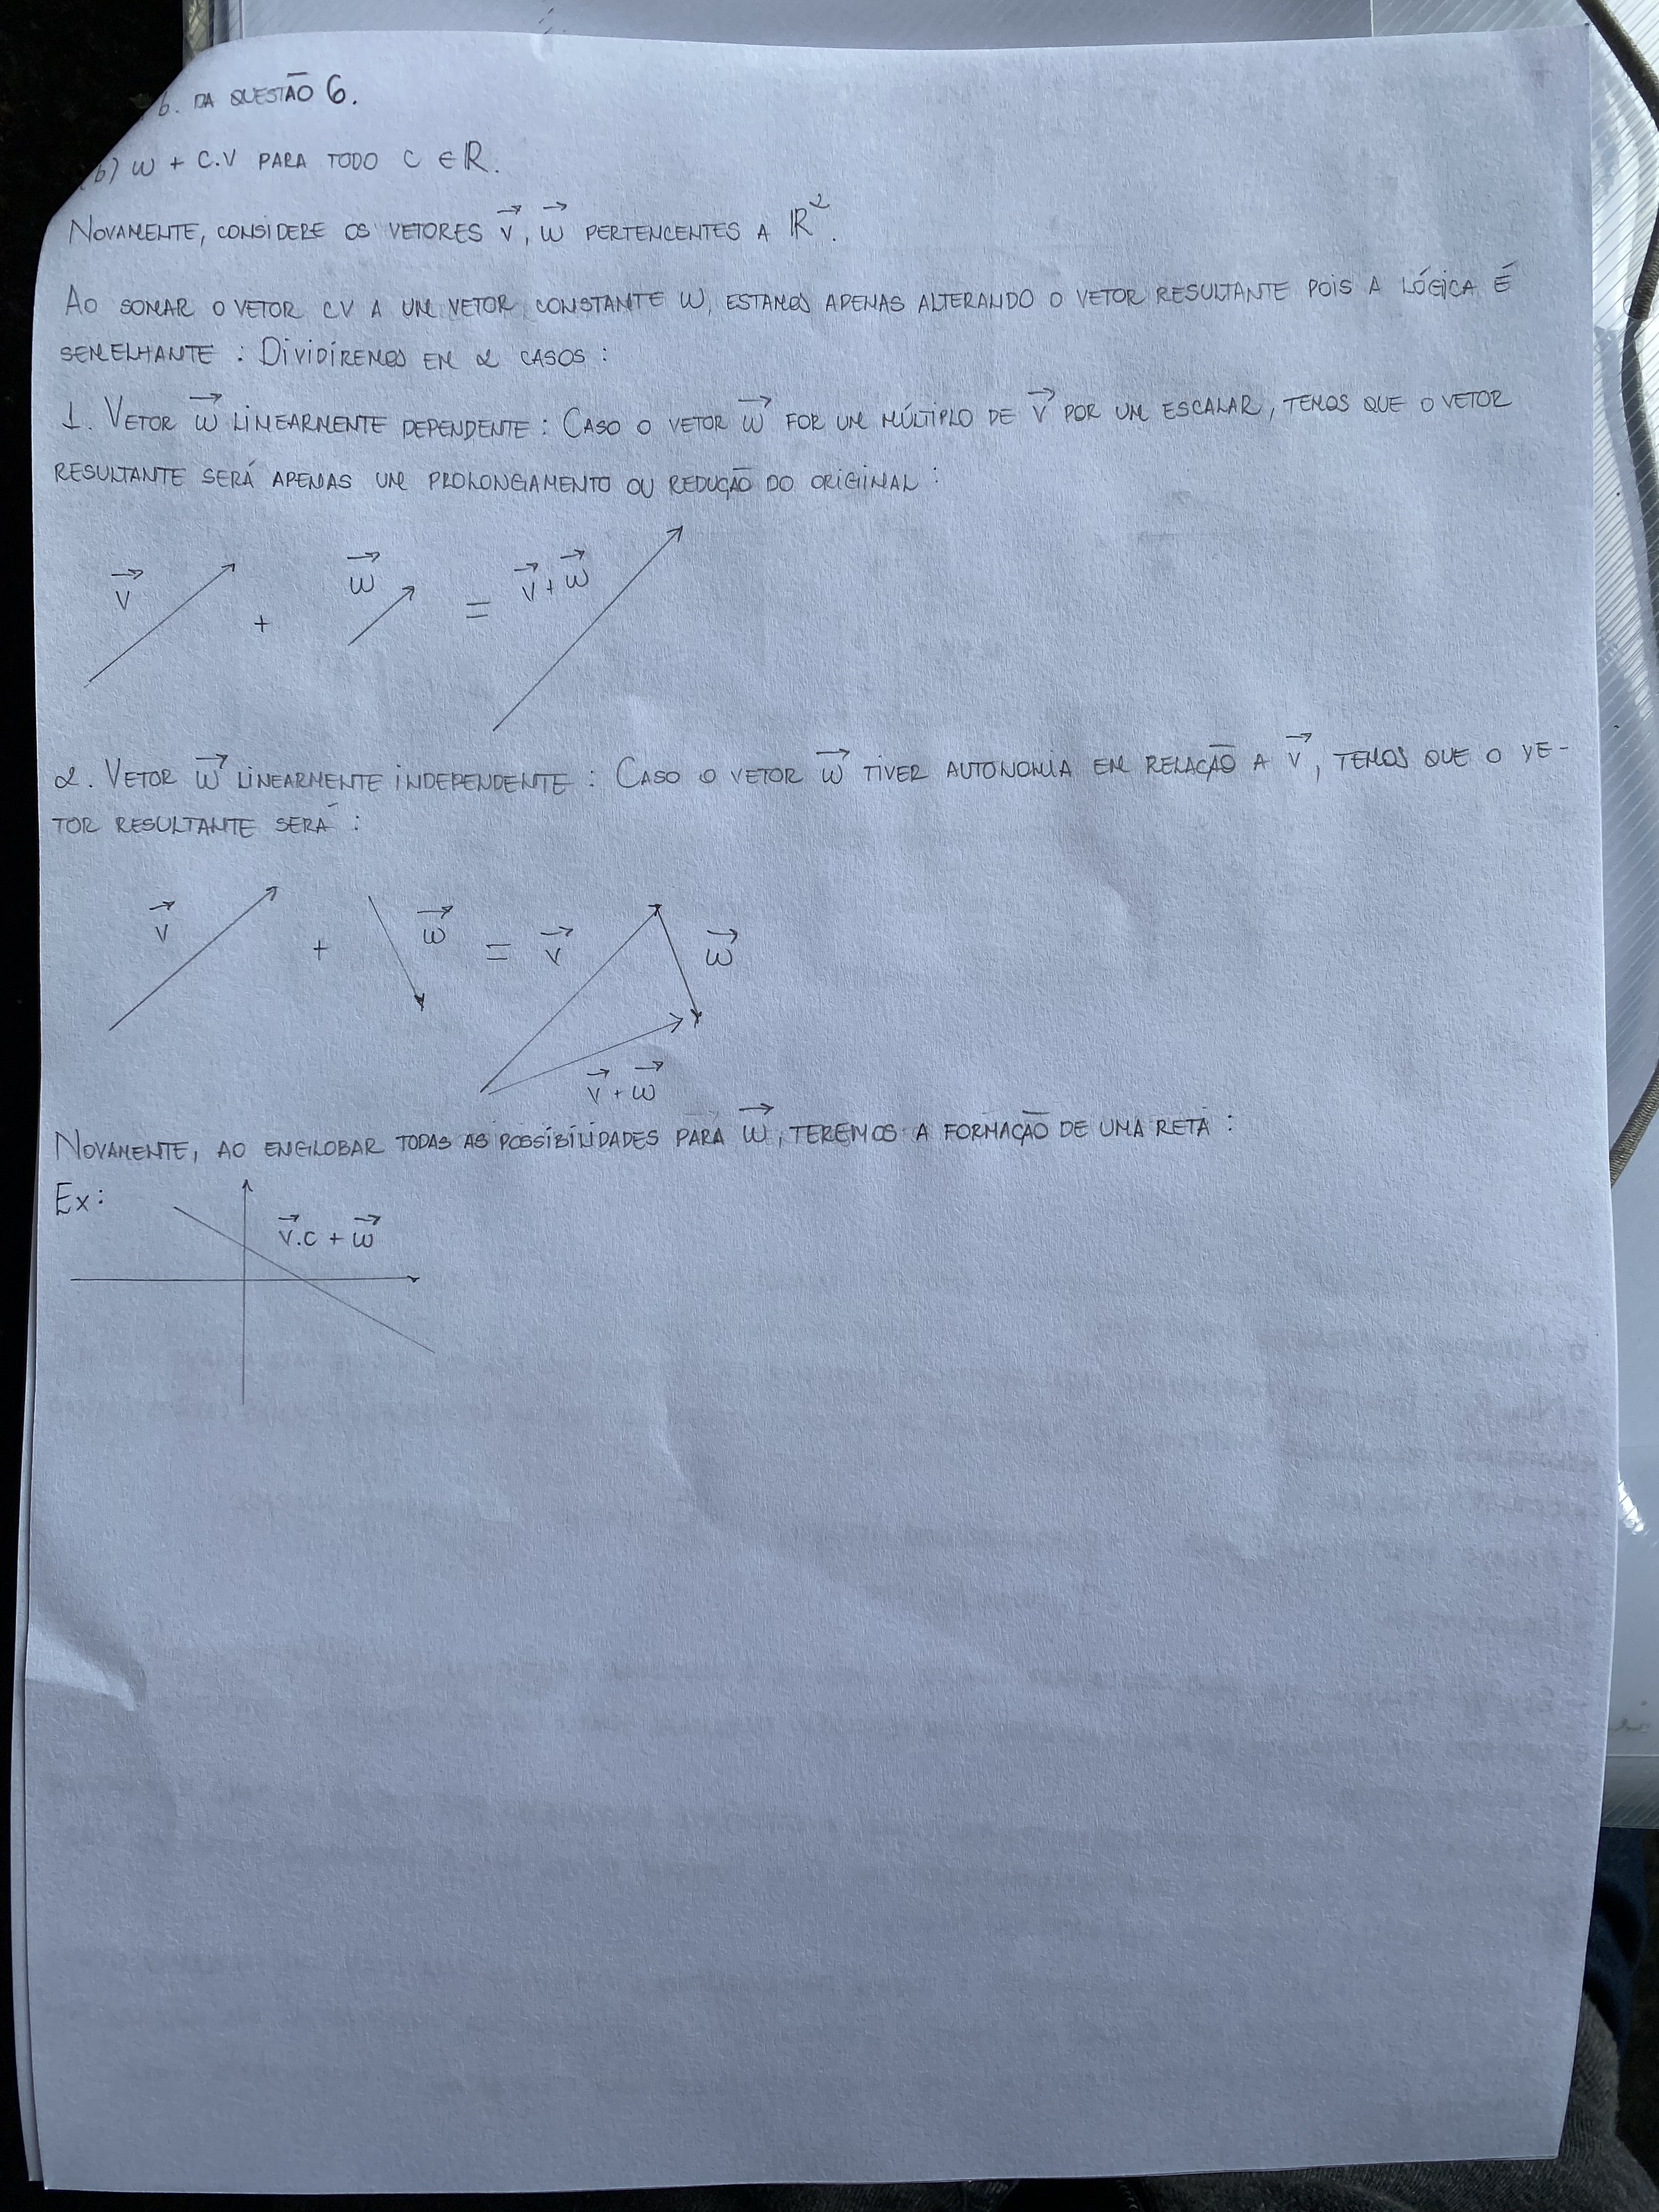 b. DA QUESTÃO 6.
(b) W + C.V PARA TODO C ∈ ℝ.
NOVAMENTE, CONSIDERE OS VETORES V⃗, W⃗ PERTENCENTES A ℝ².
AO SOMAR O VETOR CV A UM VETOR CONSTANTE W, ESTAMOS APENAS ALTERANDO O VETOR RESULTANTE POIS A LÓGICA É
SEMELHANTE : DIVIDIREMOS EM 2 CASOS :
1. VETOR W⃗ LINEARMENTE DEPENDENTE : CASO O VETOR W⃗ FOR UM MÚLTIPLO DE V⃗ POR UM ESCALAR, TEMOS QUE O VETOR
RESULTANTE SERÁ APENAS UM PROLONGAMENTO OU REDUÇÃO DO ORIGINAL :
V⃗ + W⃗ = V⃗ + W⃗
2. VETOR W⃗ LINEARMENTE INDEPENDENTE : CASO O VETOR W⃗ TIVER AUTONOMIA EM RELAÇÃO A V⃗, TEMOS QUE O VE-
TOR RESULTANTE SERÁ :
V⃗ + W⃗ = V⃗ W⃗
V⃗ + W⃗
NOVAMENTE, AO ENGLOBAR TODAS AS POSSIBILIDADES PARA W⃗, TEREMOS A FORMAÇÃO DE UMA RETA :
EX:
V⃗.C + W⃗